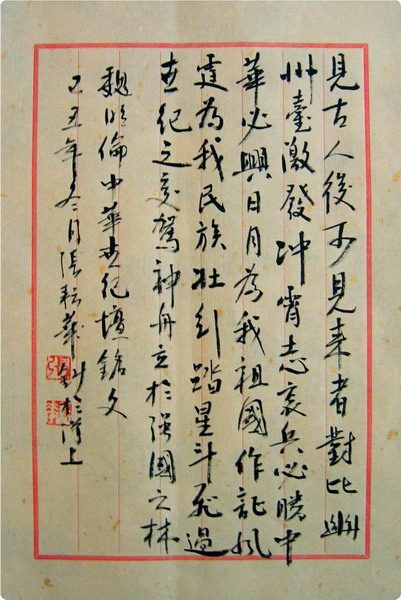 見古人後不見来者對比幽
州臺激發冲霄志哀兵必勝中
華必興日月為我祖國作証風
霆為我民族壮行踏星斗飛過
世纪之交駕神舟立於强國之林
魏明倫中華世纪壇銘文
己丑年冬月張耘華於上